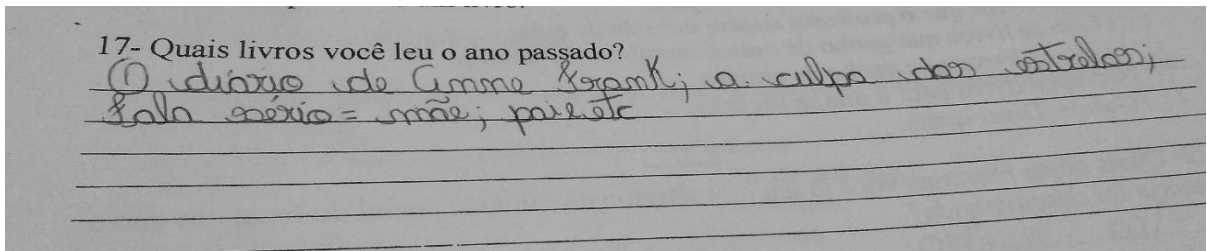 17- Quais livros você leu o ano passado?
O diário de Anne Frank; a culpa das estrelas;
Fala sério = mãe; pai e etc